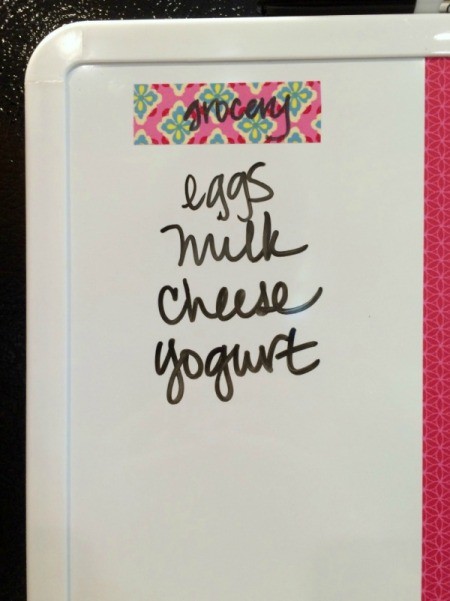 grocery
eggs
milk
cheese
yogurt